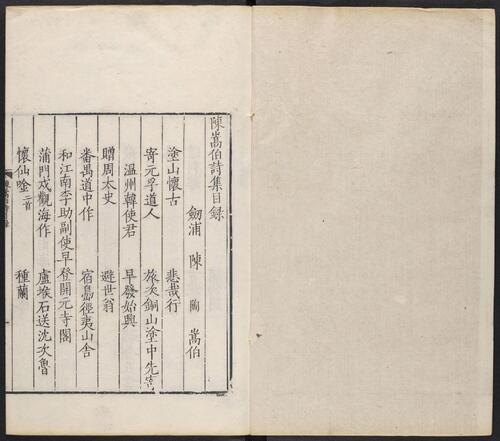 陳嵩伯詩集目錄
劒浦 陳 陶 嵩伯
塗山懷古 悲哉行
寄元孚道人 旅次銅山塗中先寄
溫州韓使君 早發始興
贈周太史 避世翁
番禺道中作 宿島徑夷山舍
和江南李助副使早登開元寺閣
蒲門戍觀海作 盧堠石送沈次魯
懷仙唫二首 種蘭